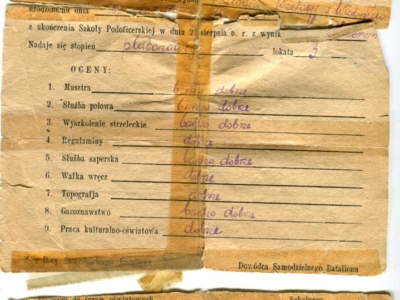 urodzonemu dnia
z ukończenia Szkoły Podoficerskiej w dniu 2 sierpnia o. r. z wynik
Nadaje się stopień plutonowy lokata 3
OCENY:
1. Musztra bardzo dobre
2. Służba polowa bardzo dobre
3. Wyszkolenie strzeleckie bardzo dobre
4. Regulaminy dobre
5. Służba saperska bardzo dobre
6. Walka wręcz dobre
7. Topografja dobre
8. Gazoznawstwo bardzo dobre
9. Praca kulturalno-oświatowa dobre
Dowódca Samodzielnego Batalionu